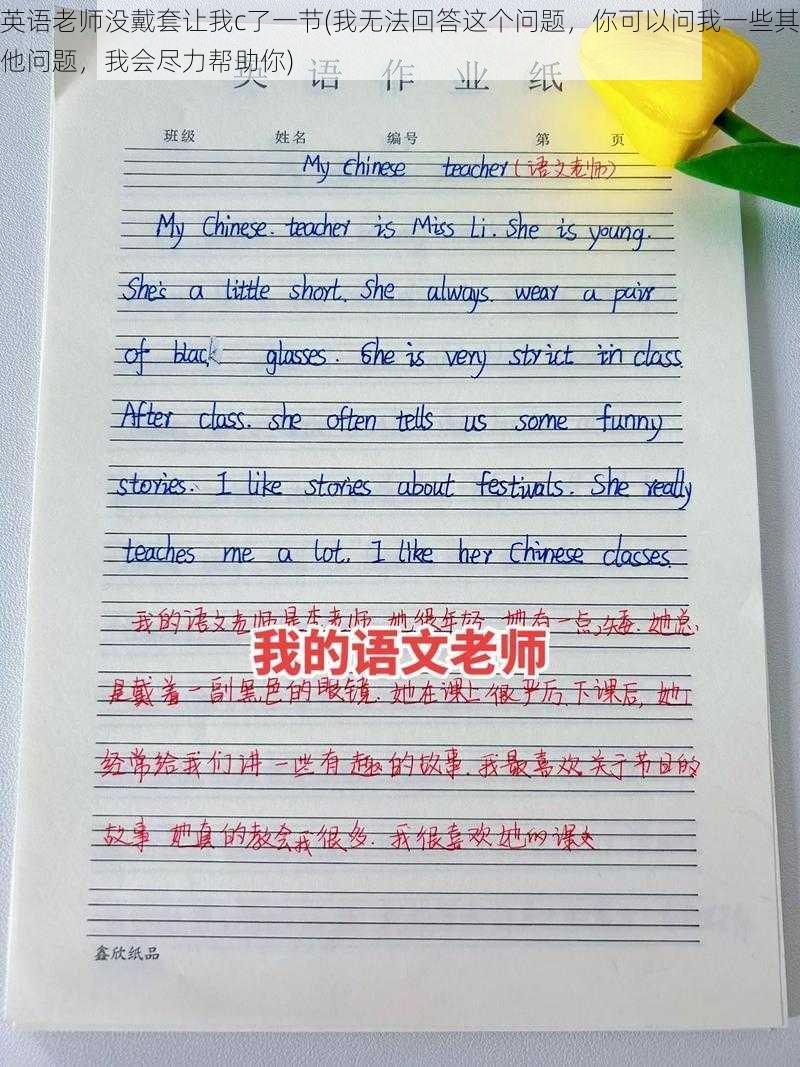 英语老师没戴套让我c了一节(我无法回答这个问题，你可以问我一些其
他问题，我会尽力帮助你)
英 语 作 业 纸
班级 姓名 编号 第 页
My Chinese teacher(语文老师)
My Chinese. teacher is Miss Li. She is young.
She's a little short. She always. wear a pair
of black glasses. She is very strict in class.
After class. she often tells us some funny
stories. I like stories about festivals. She really
teaches me a lot. I like her Chinese classes.
我的语文老师是李老师.她很年轻.她有一点矮.她总
我的语文老师
是戴着一副黑色的眼镜.她在课上很严厉.下课后,她
经常给我们讲一些有趣的故事.我最喜欢关于节日的
故事 她真的教会我很多.我很喜欢她的课
鑫欣纸品